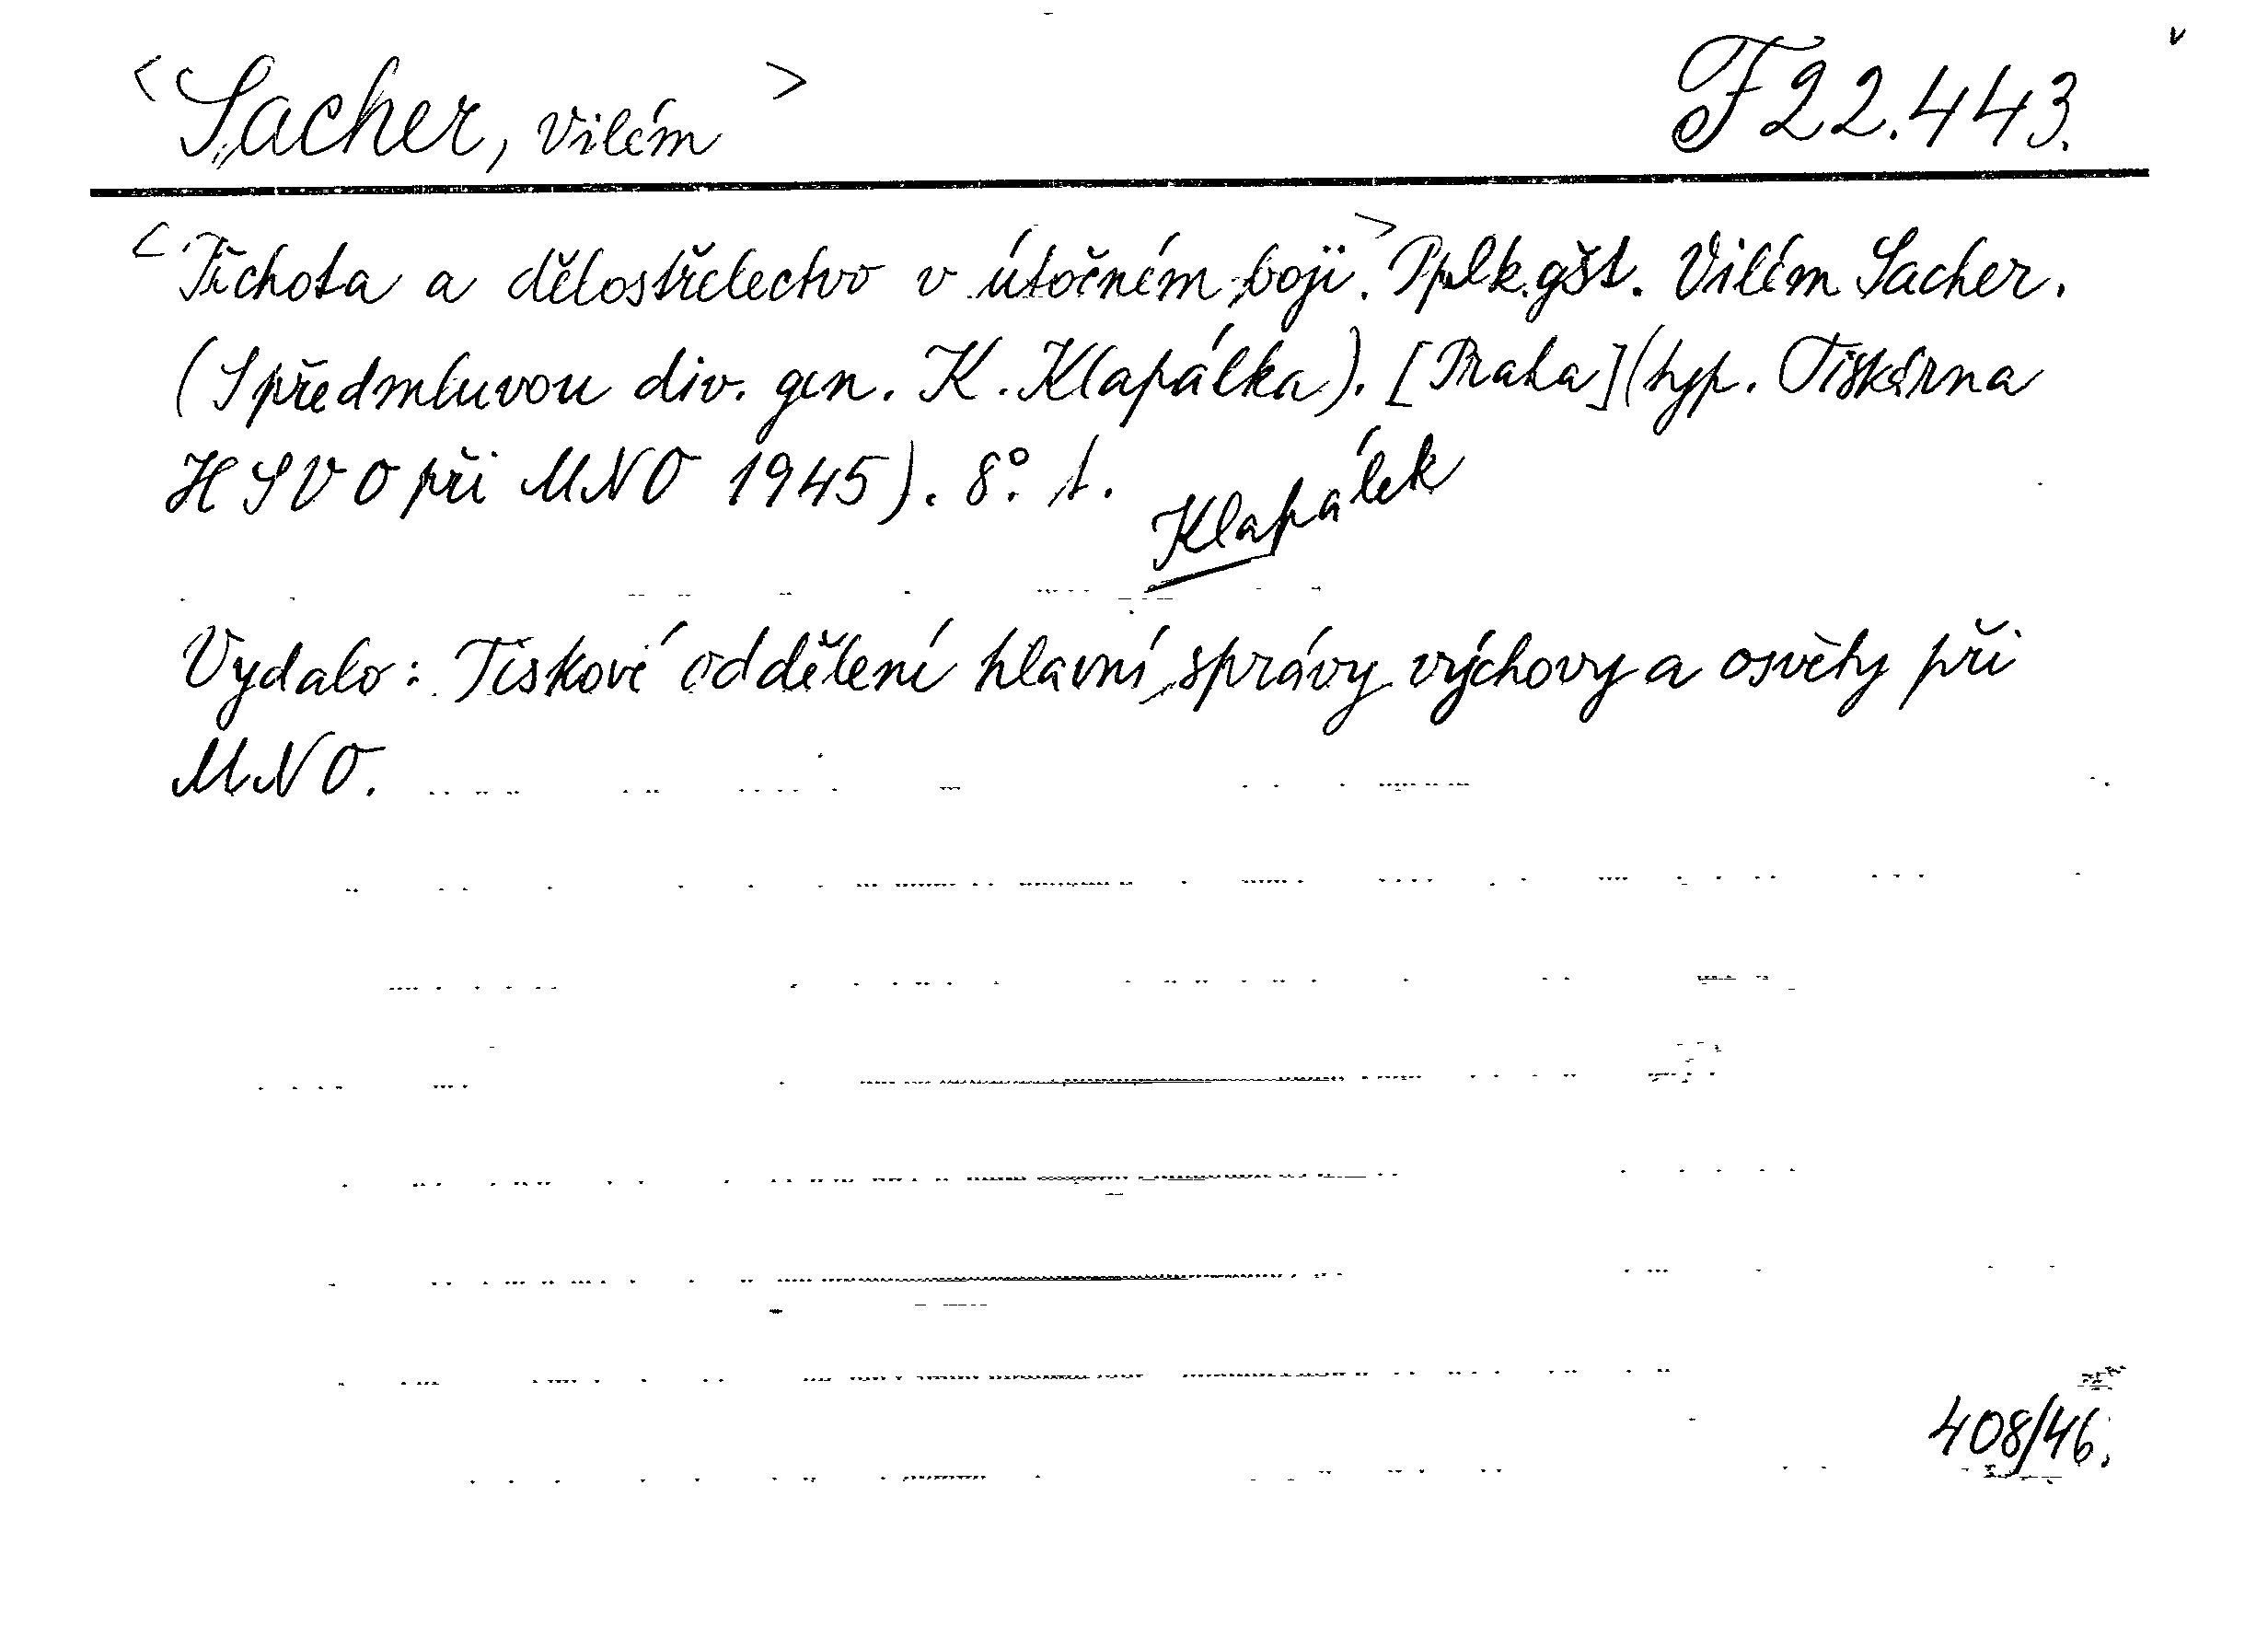 <Sacher, Vilém> F 22.443.
<Pěchota a dělostřelectvo v útočném boji.> Pplk. gšt. Vilém Sacher.
(S předmluvou div. gen. K. Klapálka). [Praha] (typ. Tiskárna
HSVO při MNO 1945). 8°. t.
Klapálek
Vydalo: Tiskové oddělení hlavní správy výchovy a osvěty při
MNO.
408/46.